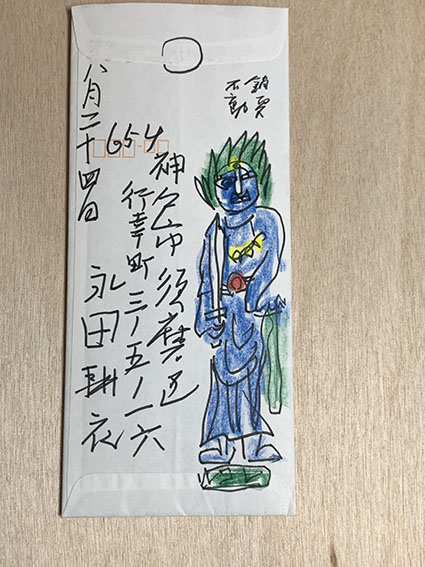 不動
八月二十四日
654
神戸市須磨区
行幸町三ノ五ノ一六
永田耕衣